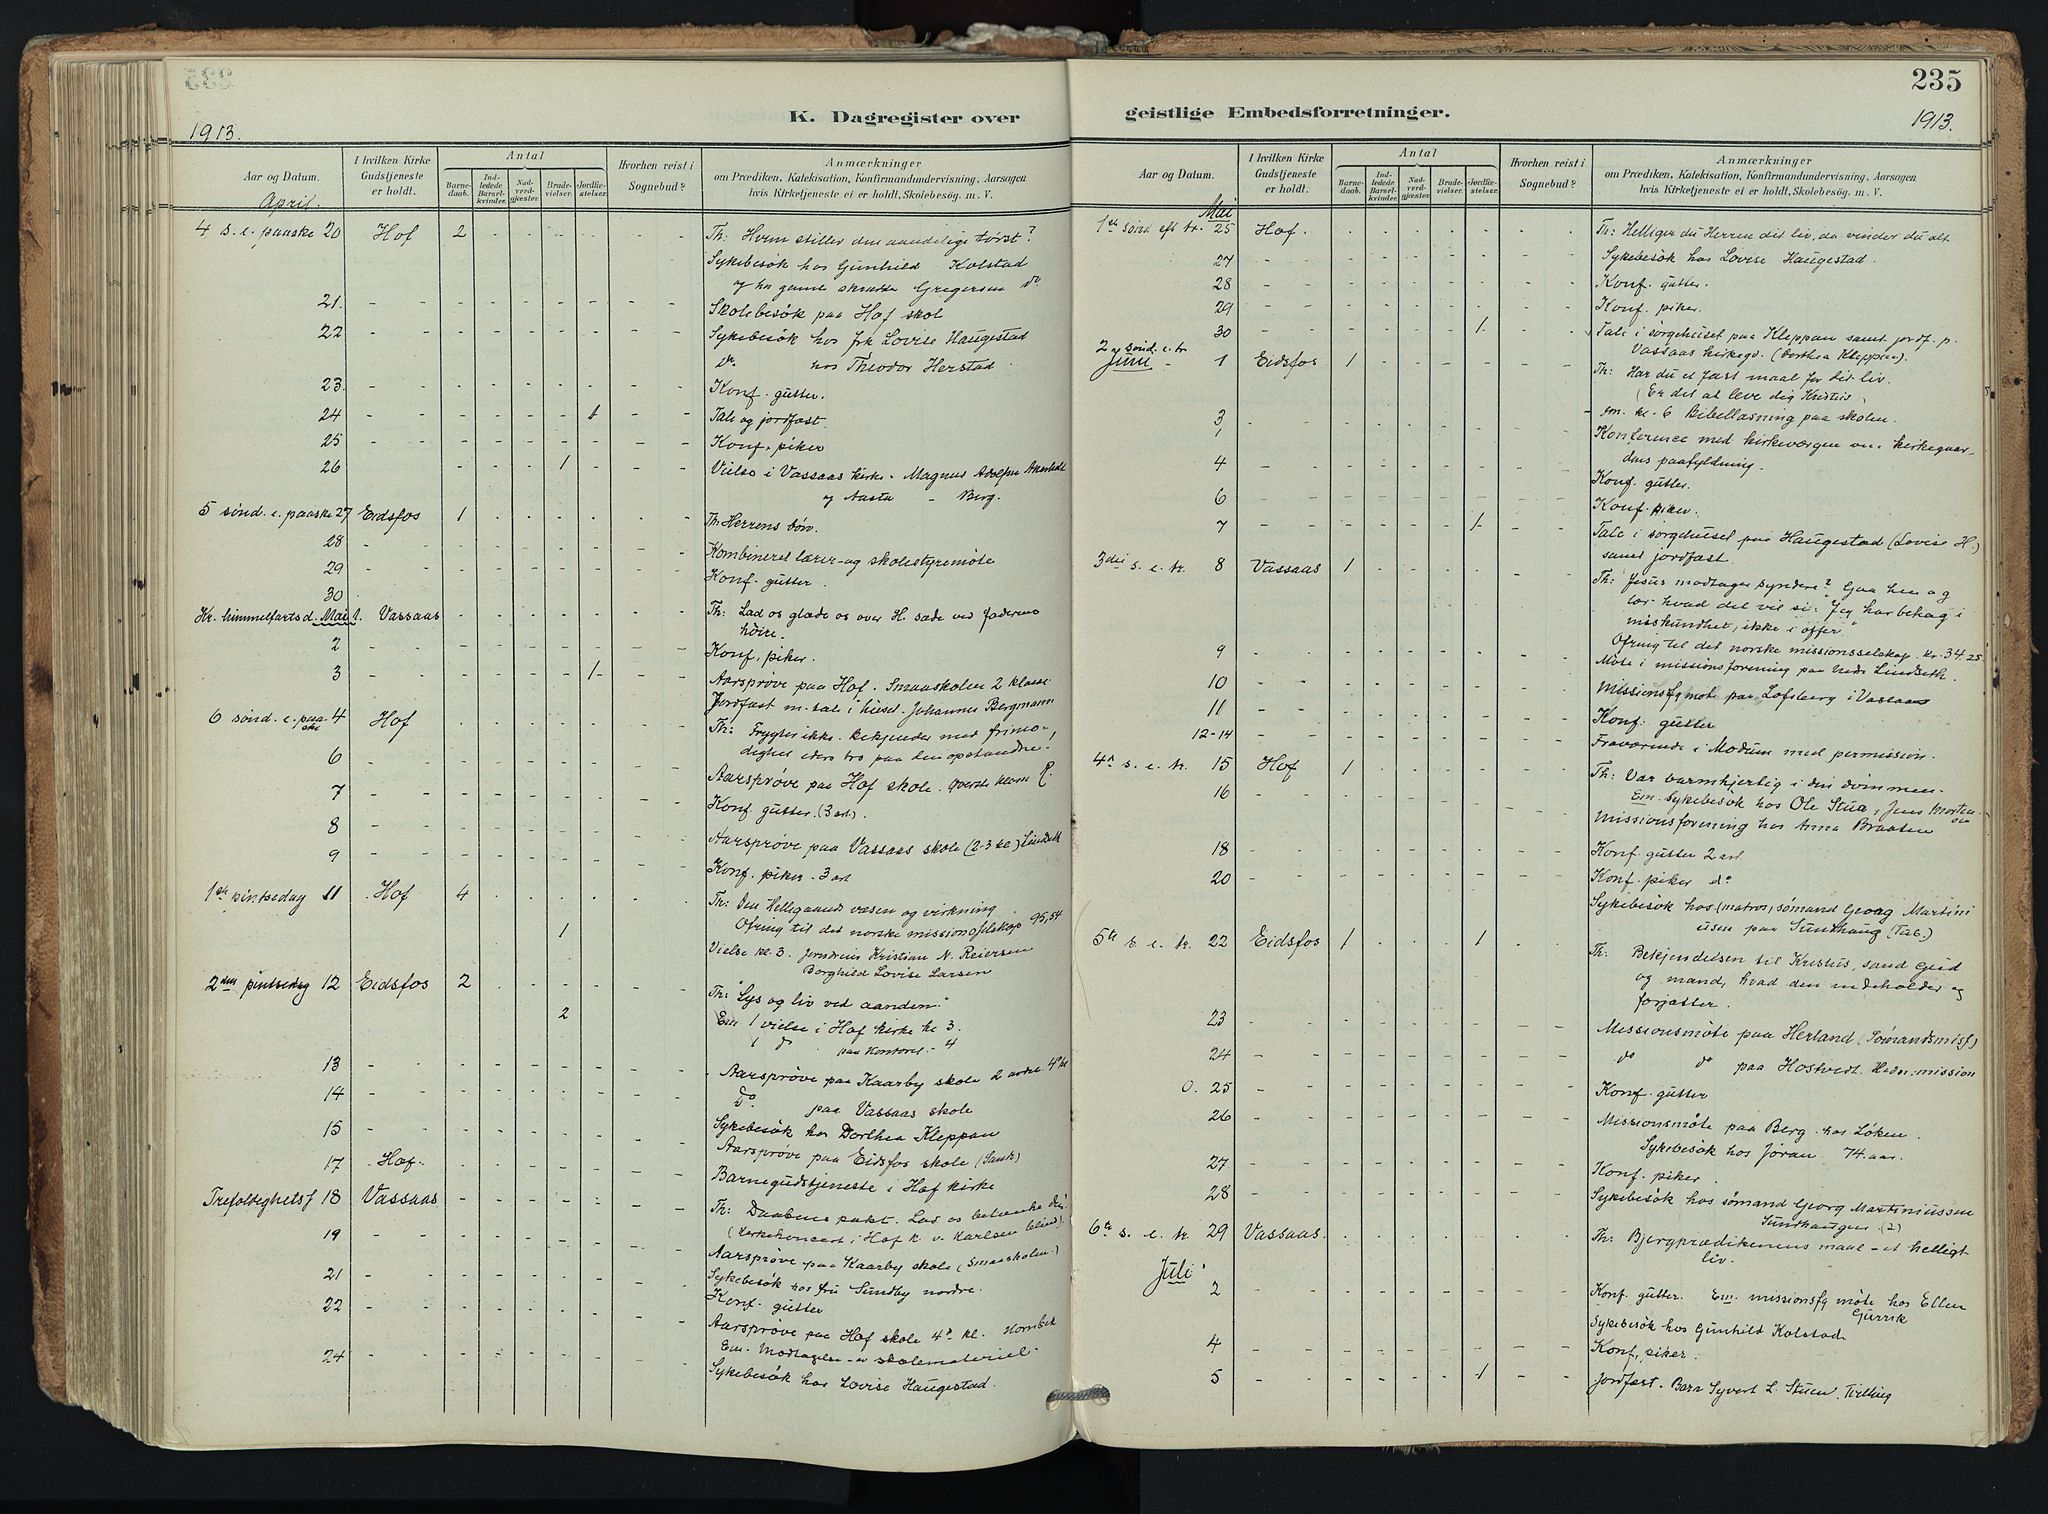 235
K. Dagregister over
geistlige Embedsforretninger.
1913.
1913.
Aar og Datum.
I hvilken Kirke
Gudstjeneste
er holdt.
Antal
Barne-
daab.
Ind-
ledede
Barsel-
kvinder.
Nad-
verd-
gjæster.
Brude-
vielser.
Jordfæ-
stelser.
Hvorhen reist i
Sognebud?
Anmærkninger
om Prædiken, Katekisation, Konfirmandundervisning, Aarsagen
hvis Kirketjeneste ei er holdt, Skolebesög. m. V.
April.
4 s. e. paaske 20 Hof 2 Th: Hvem stiller den aandelige tørst?
Sykebesök hos Gunhild Kolstad
og hos gamle Gregersen do
21. Skolebesök paa Hof skol
22 Sykebesök hos frk Lovise Haugestad
do hos Theodor Herstad.
23. Konf. gutter.
24 1 Tale og jordfæst.
25 Konf. piker
26 1 Vielse i Vassaas kirke. Magnus Adolfsen
og Aasta Berg.
5 sönd. e. paaske 27 Eidsfos 1 Th: Herrens bön.
28 Kombineret lærer- og skolestyremöte
29 Konf. gutter.
30
Kr. himmelfartsd. Mai 1. Vassaas Th: Lad os glæde os over H. sæde ved faderens
höire.
2 Konf. piker.
3 1 Aarspröve paa Hof. Smaaskolen 2 klasse
Jordfæst m. tale i huset. Johannes Bergmann
6 sönd. e. paaske 4 Hof Th: Frygter ikke. Bekjender med frimo-
dighet eders tro paa den opstandne!
6 Aarspröve paa Hof skole. överste klasse
7 Konf. gutter. (3 art.).
8 Aarspröve paa Vassaas skole (2-3 kl) Lindseth
9 Konf. piker. 3 art
1ste pintsedag 11 Hof 4 Th: Den Helligaands væsen og virkning.
Ofring til det norske missionsselskap 95,54
1 Vielse kl. 3. Kristian N. Reiersen
Borghild Lovise Larsen
2den pintsedag 12 Eidsfos 2 Th: "Lys og liv ved aanden."
2 Em 1 vielse i Hof kirke kl 3.
1 do paa kontoret - 4
13 Aarspröve paa Kaarby skole 2 andre. 4de kl
14 do paa Vassaas skole
15 Sykebesök hos Dorthea Kleppan
Aarspröve paa Eidsfos skole
17 Hof. Barnegudstjeneste i Hof kirke
Trefoldighetsf 18 Vassaas Th: Daabens pakt. Lad os betænke den.
(Kirkekoncert i Hof k. v. Karlsen blind).
19 Aarspröve paa Kaarby skole (Smaaskolen.)
Sykebesök hos fru Sundby nordre.
21 Konf. gutter
22 Aarspröve paa Hof skole 4de kl.
Em. Modtagelse skolemateriel.
24 Sykebesök hos Lovise Haugestad.
Aar og Datum.
I hvilken Kirke
Gudstjeneste
er holdt.
Antal
Barne-
daab.
Ind-
ledede
Barsel-
kvinder.
Nad-
verd-
gjæster.
Brude-
vielser.
Jordfæ-
stelser.
Hvorhen reist i
Sognebud?
Anmærkninger
om Prædiken, Katekisation, Konfirmandundervisning, Aarsagen
hvis Kirketjeneste ei er holdt, Skolebesög. m. V.
Mai
1ste sönd eft tr. 25 Hof. Th: Helliger du Herren dit liv, da vinder du alt
27 Sykebesök hos Lovise Haugestad.
28 Konf. gutter.
29 Konf. piker
30 1 Tale i sörgehuset paa Kleppan samt jordf. p.
Vassaas kirkeg. (Dorthea Kleppan).
2 sönd. e. tr
Juni 1 Eidsfos 1 Th: Har du et fast maal for dit liv.
(Er det at leve dig Kristus
em. kl. 6 Bibellæsning paa skolen.
3 Konference med kirkevergen om kirkegaar-
dens paafyldning.
4 Konf. gutter.
6 Konf. piker.
7 1 Tale i sörgehuset paa Haugestad (Lovise H.)
samt jordfæst.
3die s. e. tr. 8 Vassaas 1 Th: Jesus modtager syndere? Gaa hen og
lær hvad det vil si: "Jeg har behag i
miskundhet, ikke i offer."
Ofring til det norske missionsselskap. kr. 34.25
9 Möte i missionsforening paa nedr Lindseth.
10 Missionsf möte paa Lofsberg i Vassaas
11 Konf. gutter
12-14 Fraværende i Modum med permission.
4de s. e. tr. 15 Hof 1 Th: Vær barmhjertig i din dömmen.
Em. Sykebesök hos Ole Stua, Jens Morten-
sen
16 Missionsforening hos Anna Braaten
18 Konf. gutter 2 art
20 Konf. piker do
Sykebesök hos (matros) sömand Georg Martini
usen paa Sundhaug (Tub.)
5te s. e. tr. 22 Eidsfos 1 1 Th: Bekjendelsen til Kristus, sand Gud
og mand, hvad den indeholder og
forjætter.
23 Missionsmöte paa Herland (Sömandsmisf)
24 do do paa Hostvedt. Hedn. mission
O. 25 Konf. gutter
26 Missionsmöte paa Berg hos Löken.
Sykebesök hos Jöran 74 aar.
27 Konf. piker.
28 Sykebesök hos sömand Georg Martiniussen
Sundhaugen (2)
6te s. e. tr. 29 Vassaas. Th: Bjergprædikenens maal - et helligt
liv.
Juli
2 Konf. gutter. Em. missionsf möte hos Ellen
Gurrik
Sykebesök hos Gunhild Kolstad.
4 Konf. piker.
5 1 Jordfæst. Barn Syvert L. Stuen,